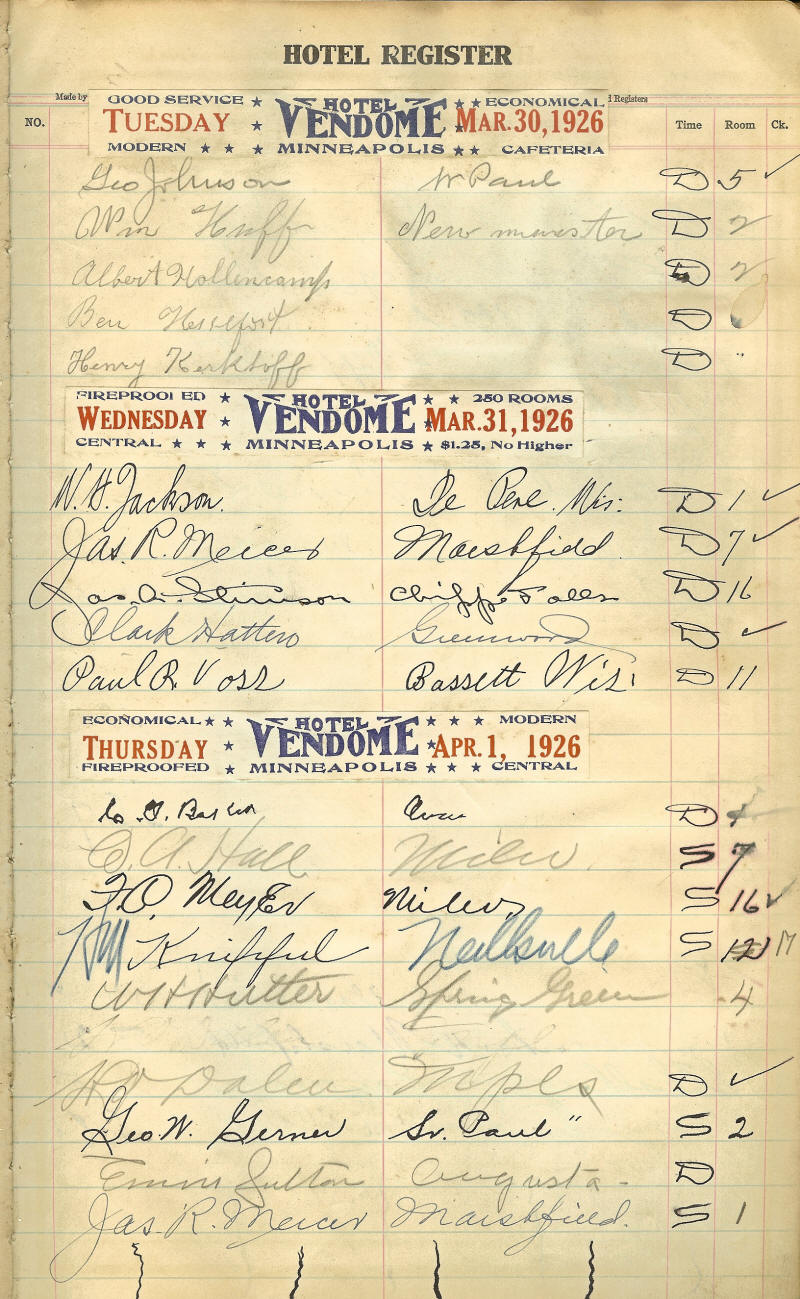 HOTEL REGISTER
Made by
d Registers
NO. Time Room Ck.
GOOD SERVICE ★ HOTEL ★ ★ ECONOMICAL
TUESDAY ★ VENDOME MAR. 30, 1926
MODERN ★ ★ ★ MINNEAPOLIS ★ ★ CAFETERIA
Geo Johnson St Paul D 5 ✓
Wm Huff New D 2
Albert Hollencamp D 2
Ben D
Henry Kerkhoff D "
FIREPROOFED ★ HOTEL ★ ★ 250 ROOMS
WEDNESDAY ★ VENDOME ★ MAR. 31, 1926
CENTRAL ★ ★ ★ MINNEAPOLIS ★ $1.25, No Higher
W. H. Jackson. De Pere. Wis: D 1 ✓
Jas. R. Mercer Marshfield. D 7 ✓
Jas. A. Stimson Chippe Falls D 16
Clark Hattero Greenwood D ✓
Paul R. Voss Bassett Wis: D 11
ECONOMICAL ★ ★ HOTEL ★ ★ ★ MODERN
THURSDAY ★ VENDOME ★ APR. 1, 1926
FIREPROOFED ★ MINNEAPOLIS ★ ★ ★ CENTRAL
D
C. A. Hall Milw. S 7
F. O. Meyer Milw. S 16 ✓
Neillsville S
W H Hutter Spring Green 4
Dalen Mpls D ✓
Geo. W. Gerner St. Paul " S 2
Sutton Augusta - D
Jas. R. Mercer Marshfield. S 1